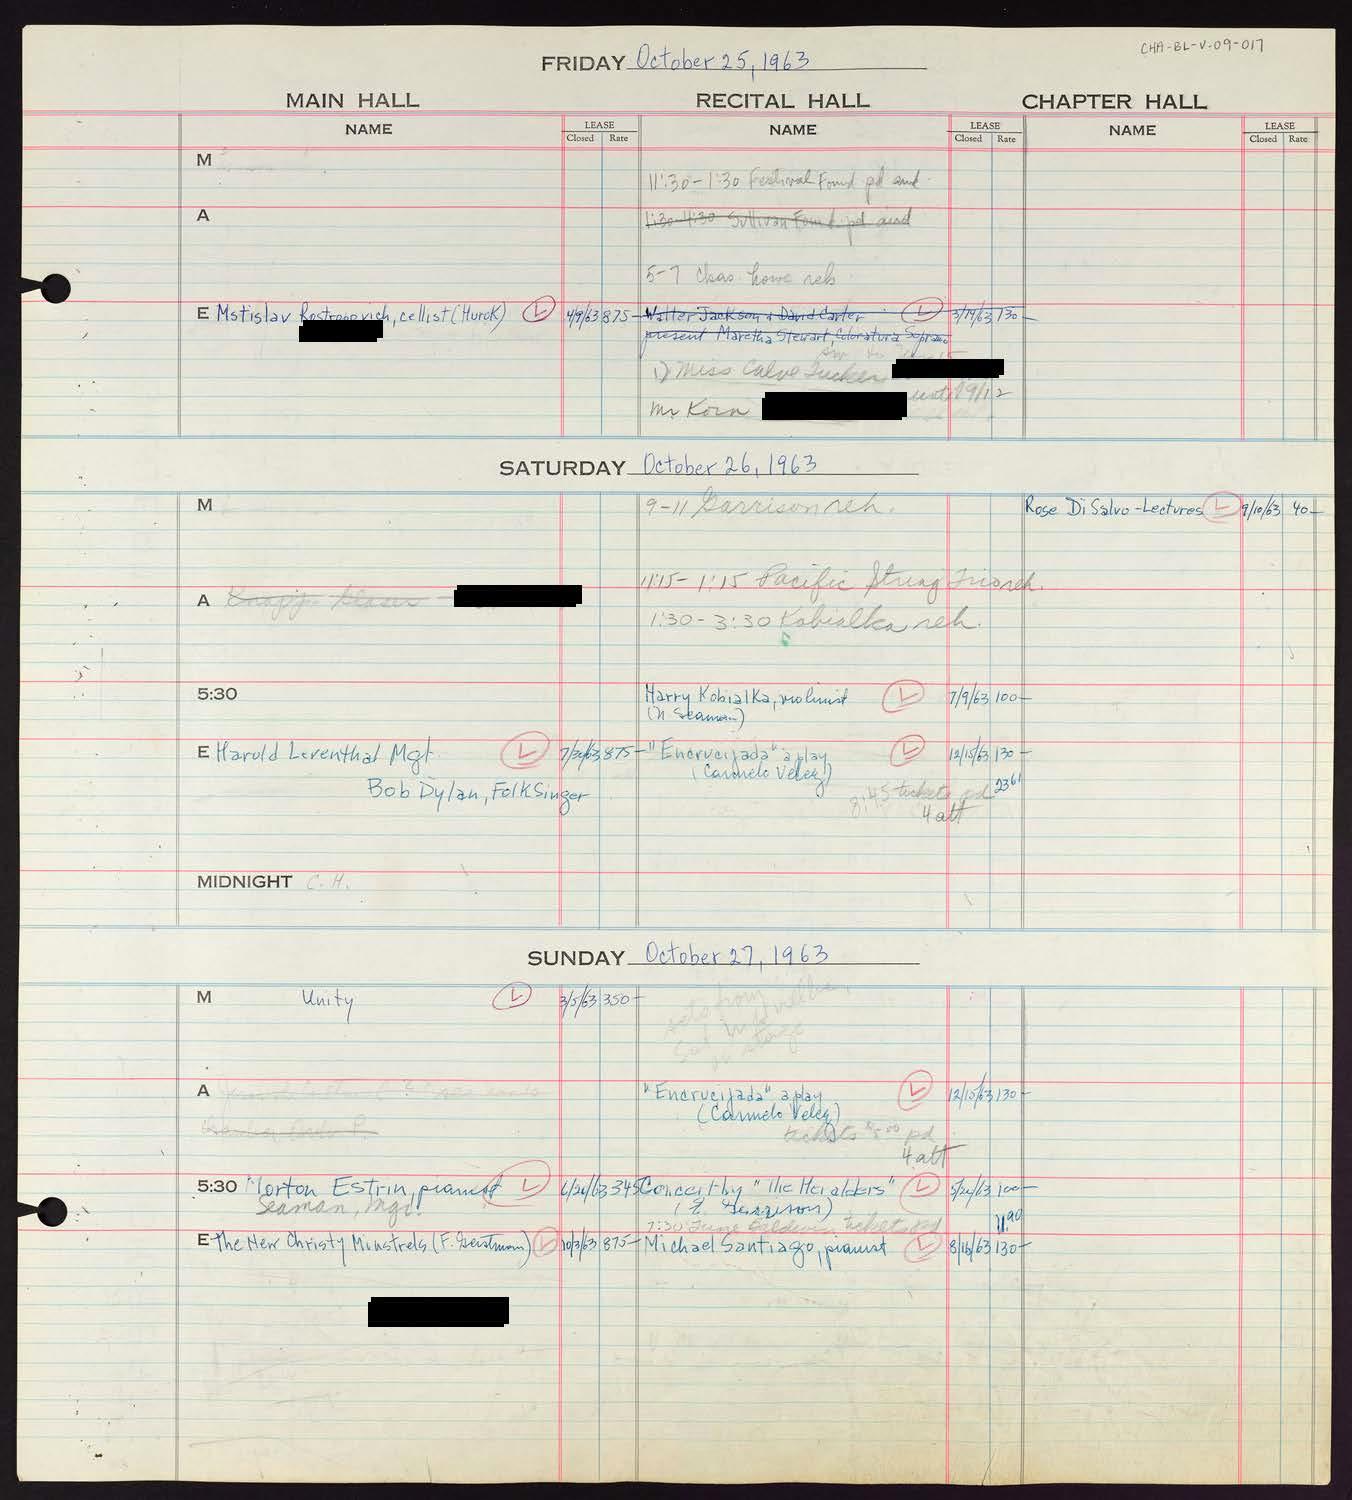 CHA-BL-V-09-017
FRIDAY October 25, 1963
MAIN HALL RECITAL HALL CHAPTER HALL
NAME LEASE Closed Rate NAME LEASE Closed Rate NAME LEASE Closed Rate
M
11:30-1:30 Festival Found pd aud
A
1:30-4:30 Sullivan Found pd aud
5-7 Chas. Howe reh
E Mstislav Rostropovich, cellist (Hurok) L 4/9/63 875- Walter Jackson & David Carter L 3/14/63 130-
present Maretha Stewart, Coloratura Soprano
1) Miss Calve Tucker
9/12
Mr Korn
SATURDAY October 26, 1963
M 9-11 Garrison reh. Rose Di Salvo-Lectures L 9/10/63 40-
11:15-1:15 Pacific String Trio reh.
A
1:30-3:30 Kobialka reh.
5:30 Harry Kobialka, violinist L 7/9/63 100-
(N Seaman)
E Harold Leventhal Mgt. L 7/30/63 875- "Encrucijada" a play L 12/15/63 130-
(Carmelo Velez)
Bob Dylan, FolkSinger
8:45 tickets pd 23 61
4 att
MIDNIGHT C. H.
SUNDAY October 27, 1963
M Unity L 3/5/63 350-
A "Encrucijada" a play L 12/15/63 130-
(Carmelo Velez)
tickets pd
4 att
5:30 Morton Estrin, pianist L 6/26/63 345 Concert by "The Heralders" L 5/24/63 100-
Seaman, Mgt. (E. Garrison)
7:30 June Baldwin tickets pd 11 90
E The New Christy Minstrels (F. Gerstman) L 10/3/63 875- Michael Santiago, pianist L 8/16/63 130-